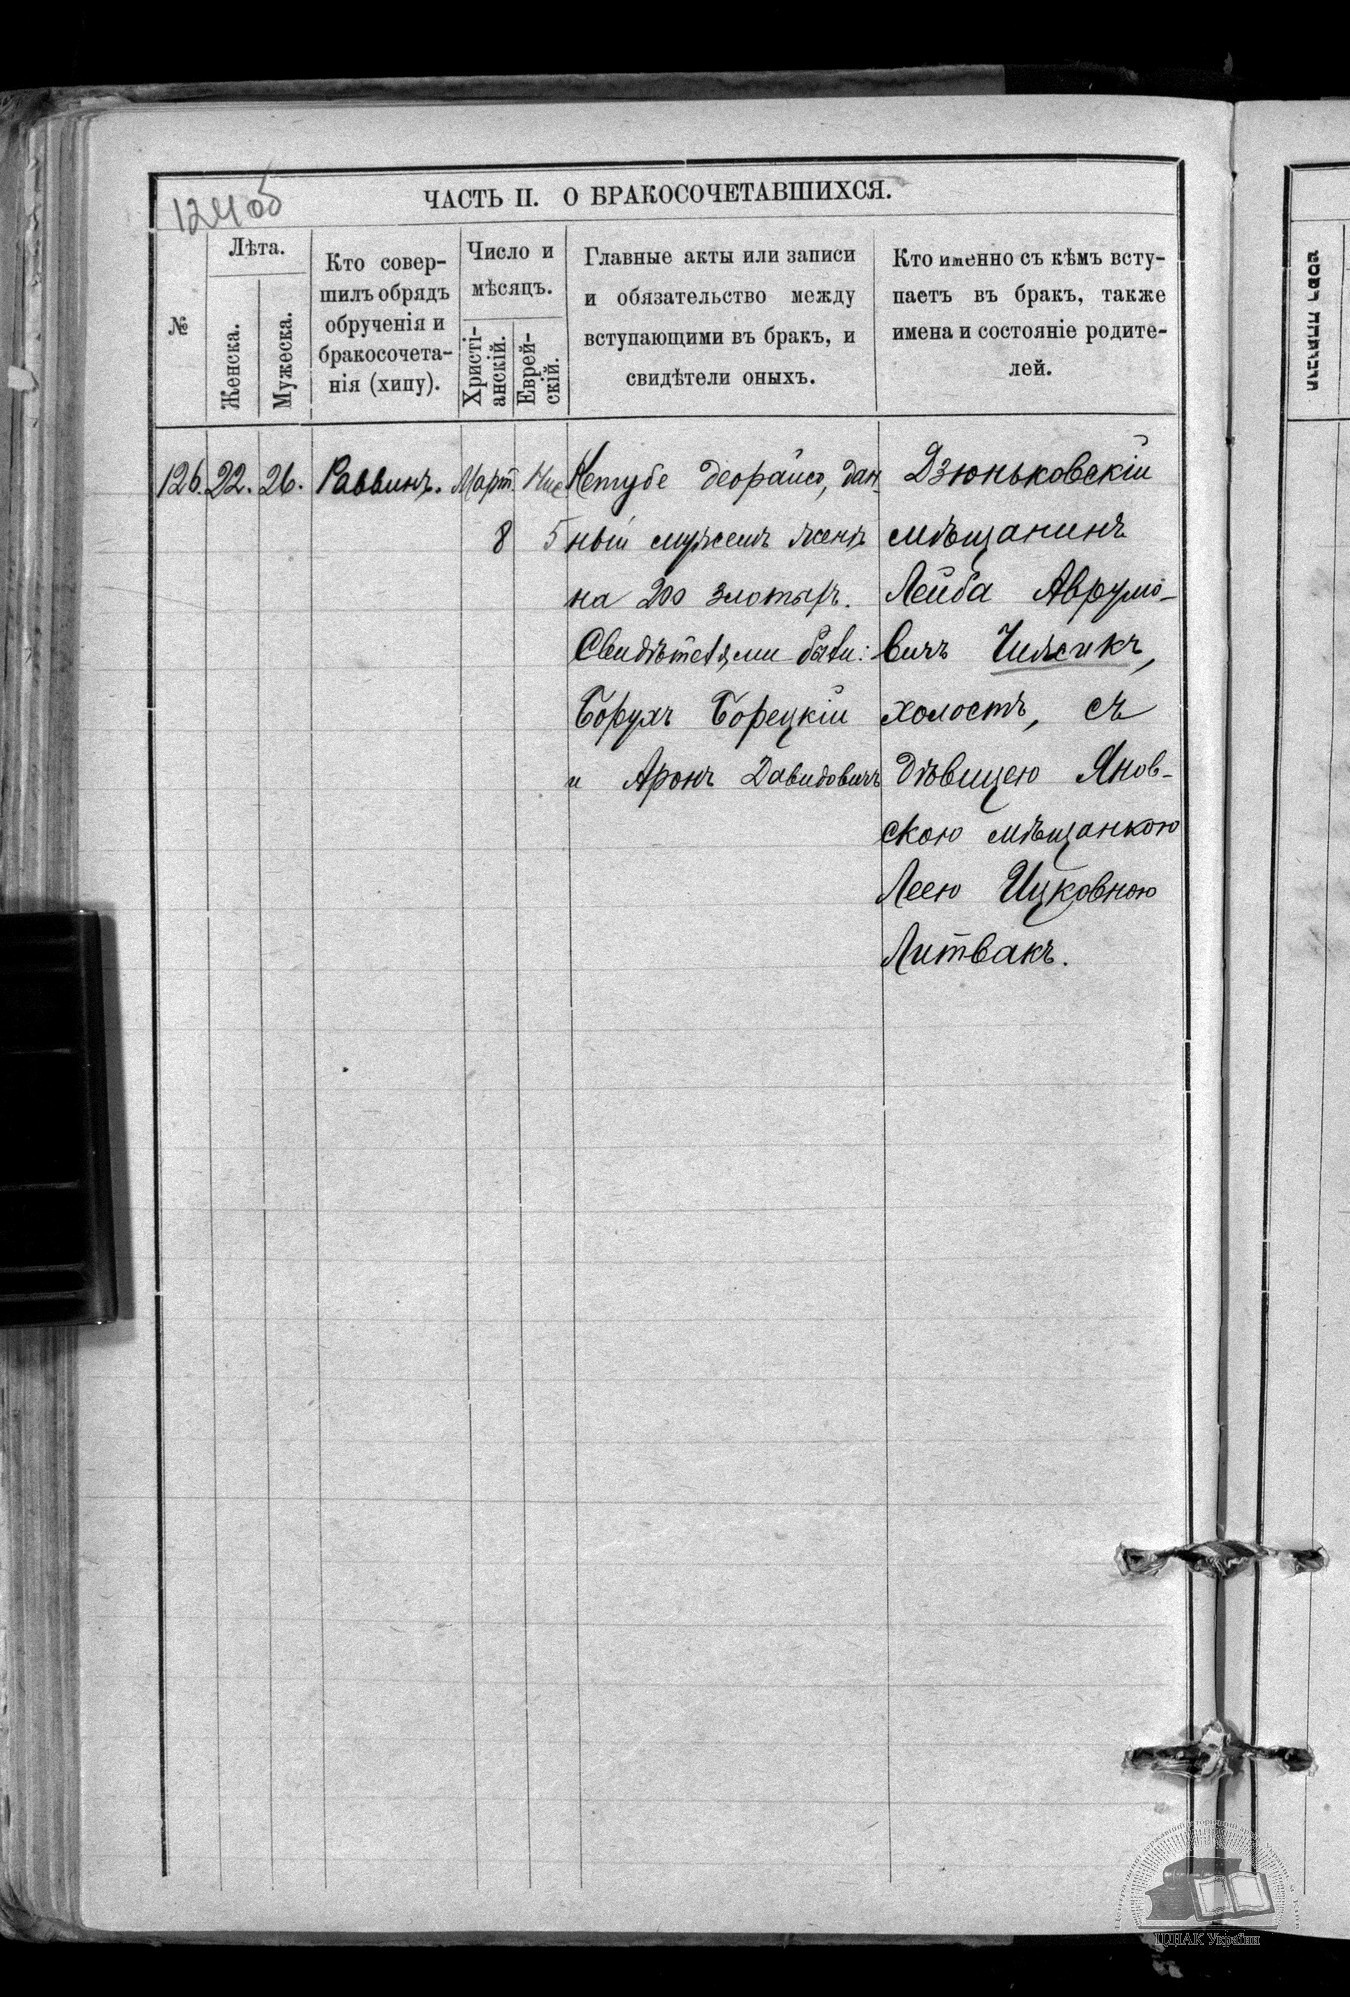 ЧАСТЬ II. О БРАКОСОЧЕТАВШИХСЯ.
№
Лѣта.
Женска.
Мужеска.
Кто совер-
шилъ обрядъ
обрученія и
бракосочета-
нія (хипу).
Число и
мѣсяцъ.
Христі-
анскій.
Еврей-
скій.
Главные акты или записи
и обязательство между
вступающими въ бракъ, и
свидѣтели оныхъ.
Кто именно съ кѣмъ всту-
паетъ въ бракъ, также
имена и состояніе родите-
лей.
126.
22.
26.
Раввинъ.
Март
8
Нис
5
Кетубе деорайсо, дан-
ный мужемъ женѣ
на 200 злотыхъ.
Свидѣтелями были:
Борухъ Борецкій
и Аронъ Давидовичъ
Дзюньковскій
мѣщанинъ
Лейба Аврумо-
вичъ
холостъ, съ
дѣвицею Янов-
скою мѣщанкою
Леею Ицковною
Литвакъ.
ЦДІАК України